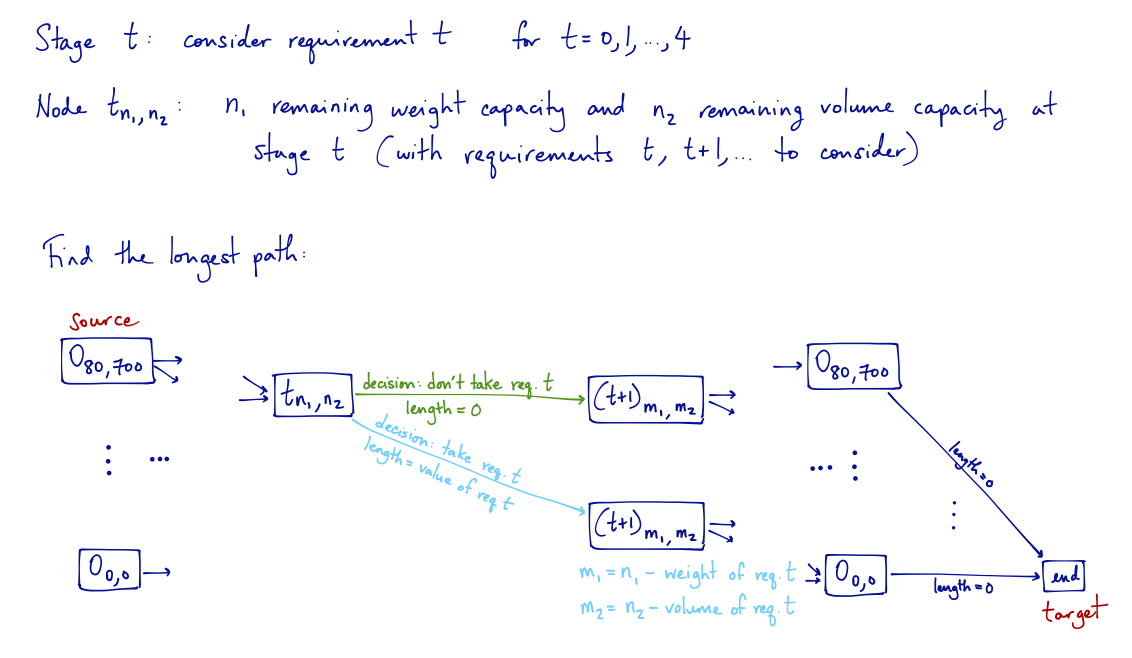 Stage t: consider requirement t for t = 0, 1, ..., 4
Node t_{n₁,n₂}: n₁ remaining weight capacity and n₂ remaining volume capacity at
stage t (with requirements t, t+1, ... to consider)
Find the longest path:
source
0_{80,700}
0_{80,700}
t_{n₁,n₂}
decision: don't take req. t
length = 0
(t+1)_{m₁,m₂}
decision: take req. t
length = value of req t
length = 0
(t+1)_{m₁,m₂}
0_{0,0}
m₁ = n₁ - weight of req. t
m₂ = n₂ - volume of req. t
0_{0,0}
length = 0
end
target